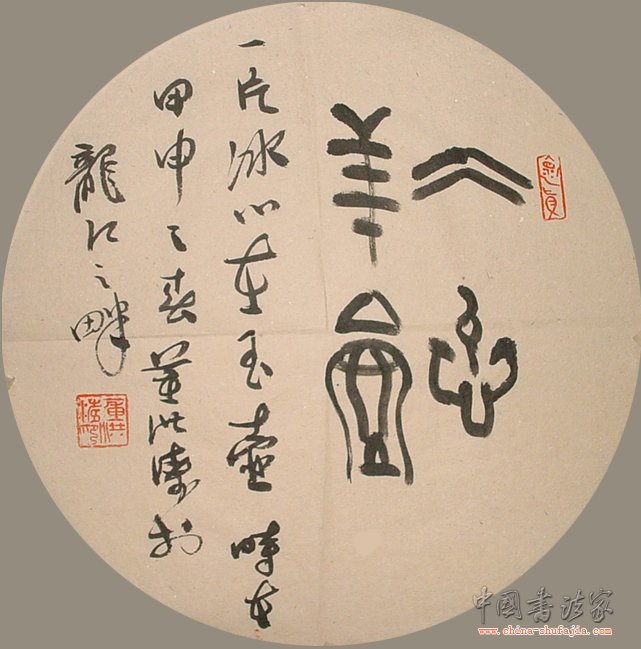 仌心
玉壺
一片冰心在玉壺 時在
甲申之春董洪濤於
龍江之畔
中國書法家
www.china-shufajia.com